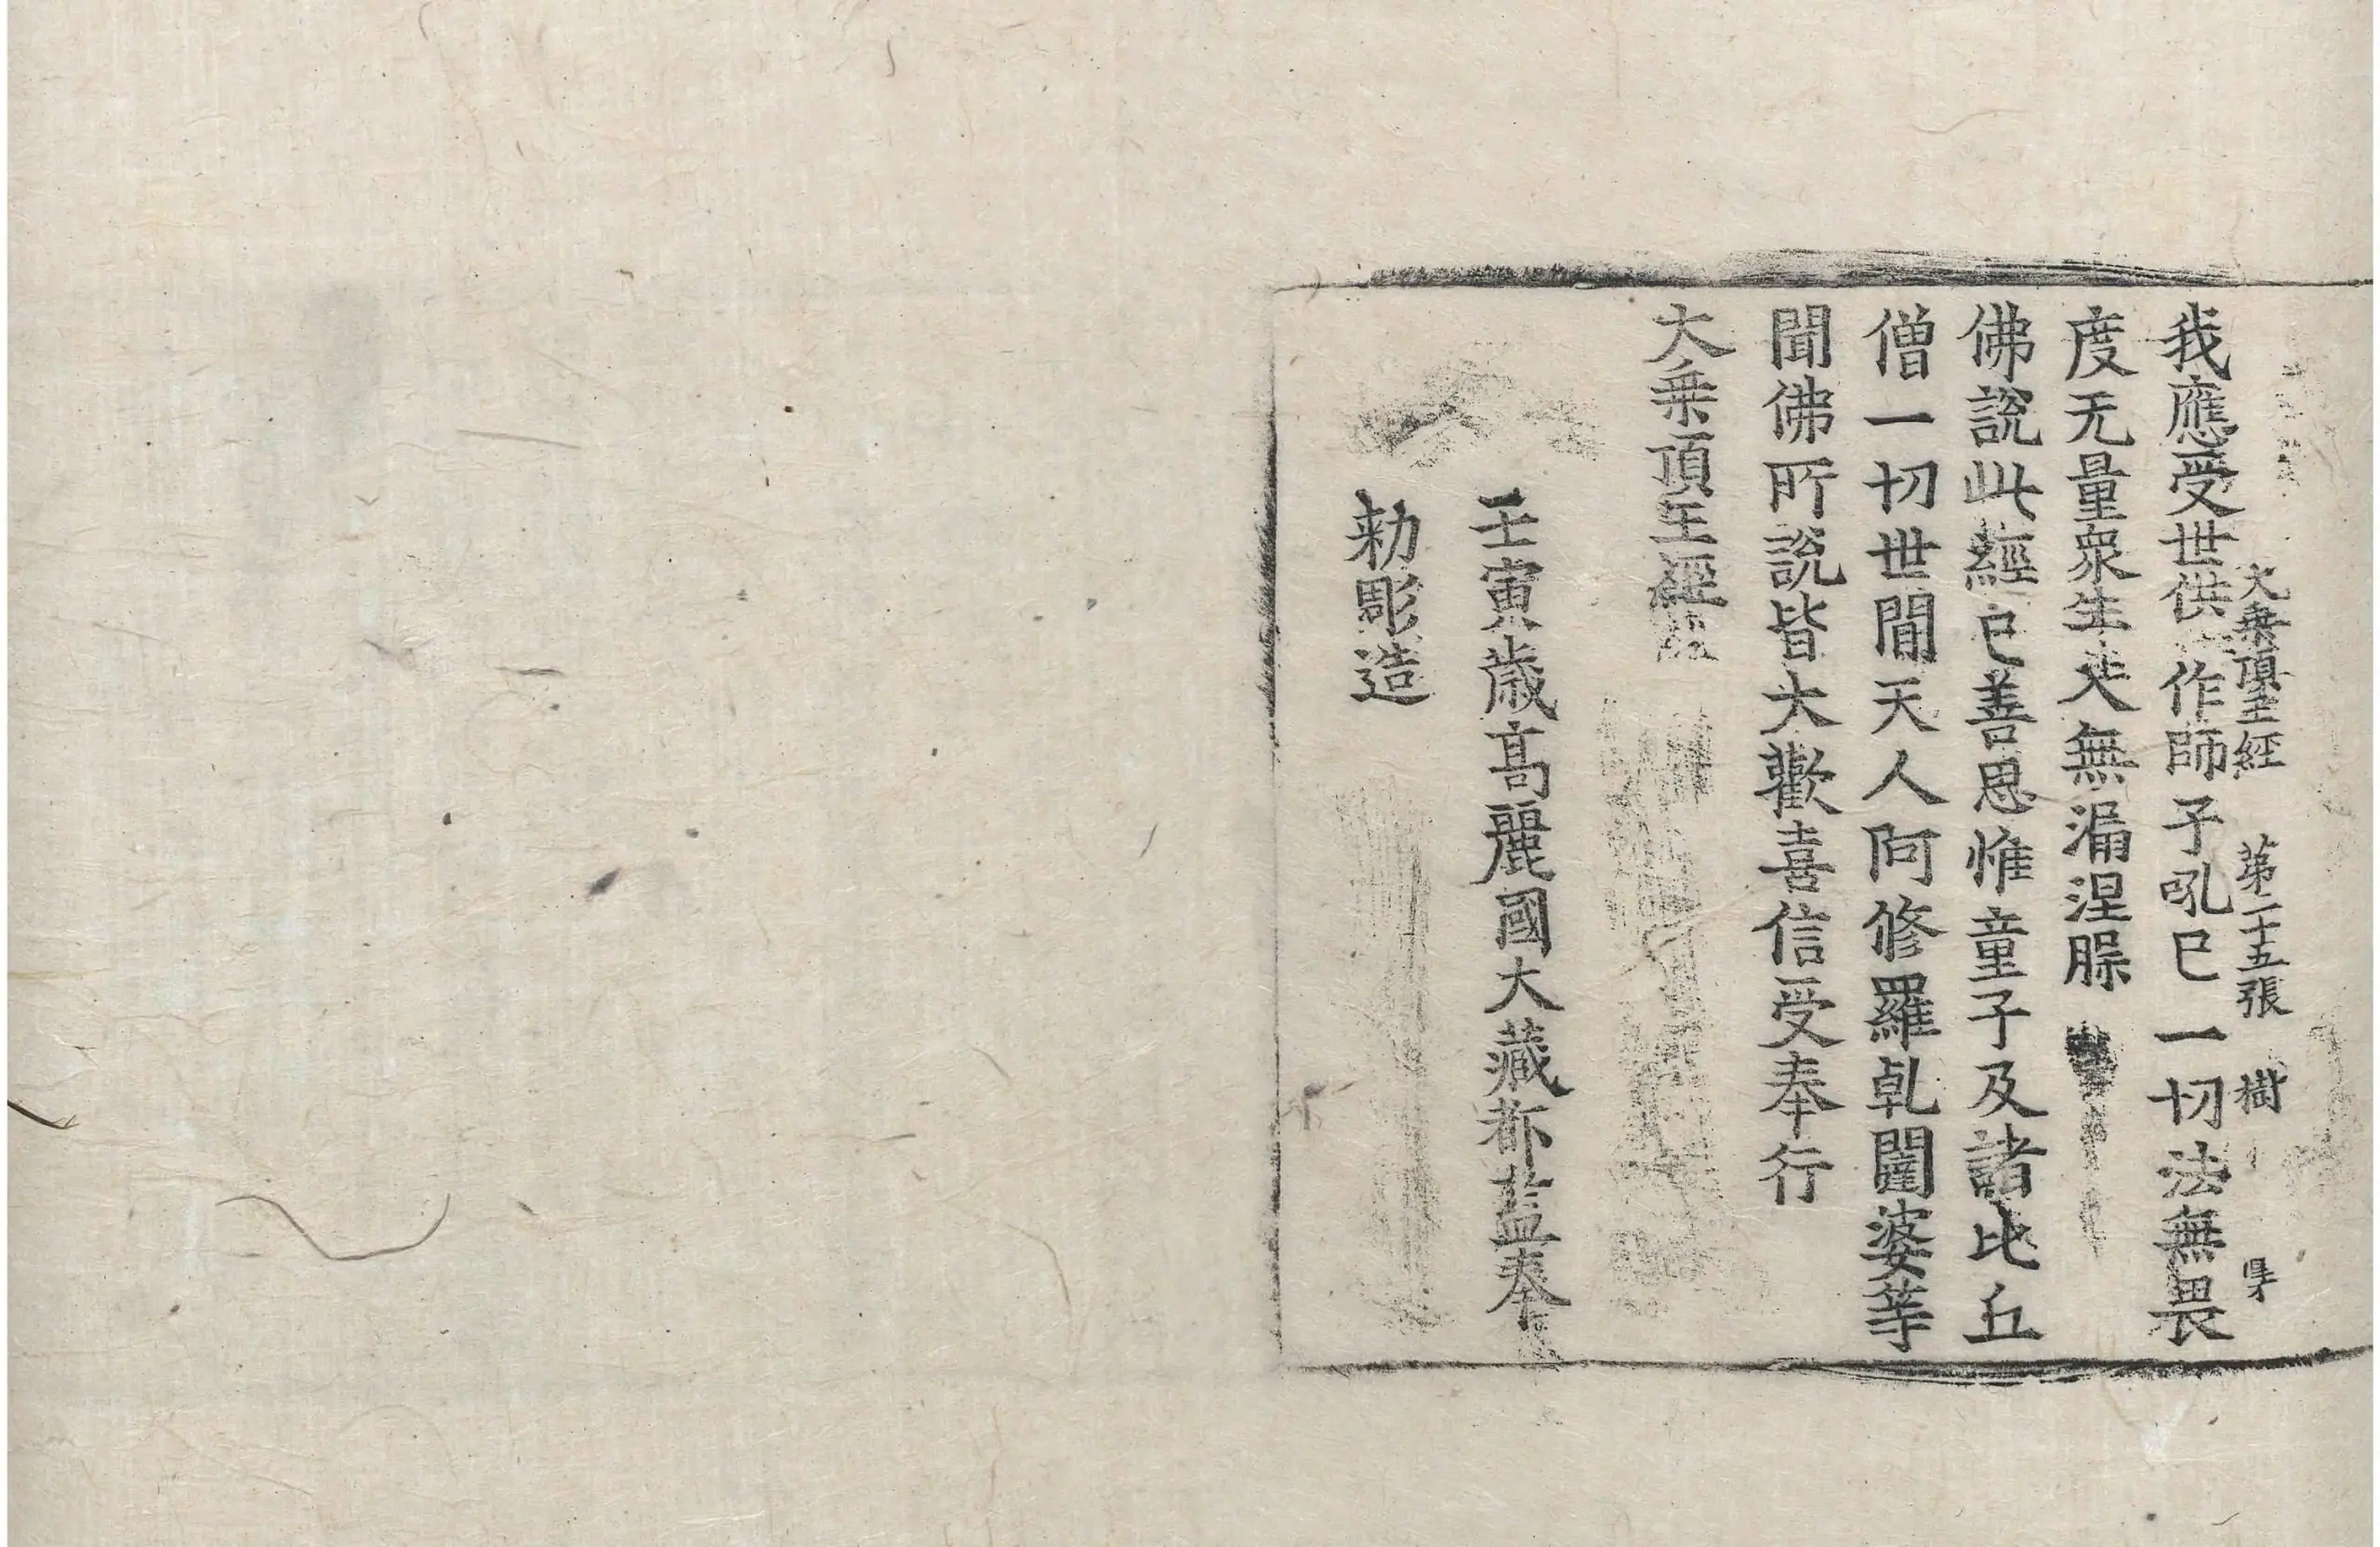 大乗頂王經 第二十五張 樹
我應受世供 作師子吼已 一切法無畏
度无量衆生 入無漏涅槃
佛說此經已善思惟童子及諸比丘
僧一切世間天人阿修羅乹闥婆等
聞佛所說皆大歡喜信受奉行
大乗頂王經
壬寅歳高麗國大藏都監奉
勑彫造